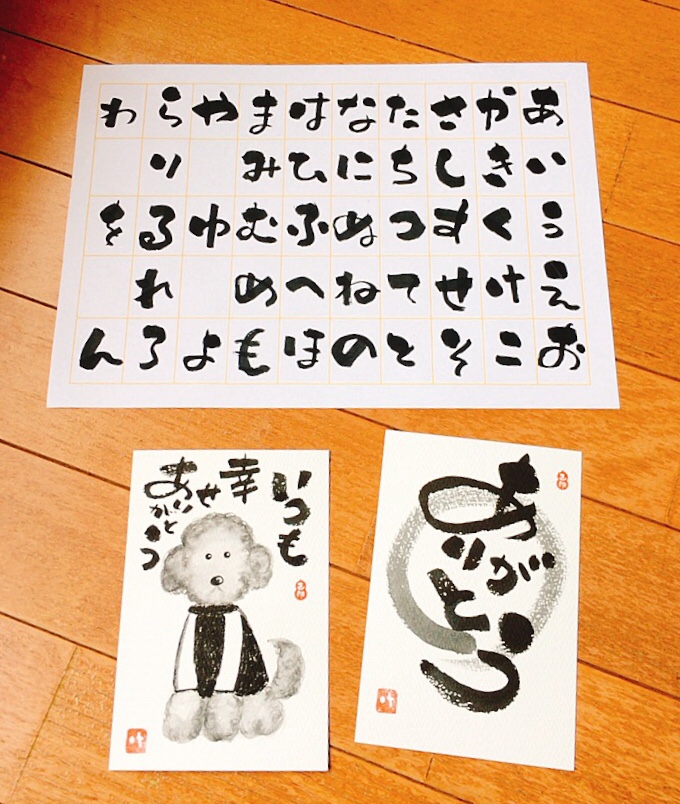 あいうえお
かきくけこ
さしすせそ
たちつてと
なにぬねの
はひふへほ
まみむめも
やゆよ
らりるれろ
わをん
いつも
幸せ
ありがとう
ありがとう